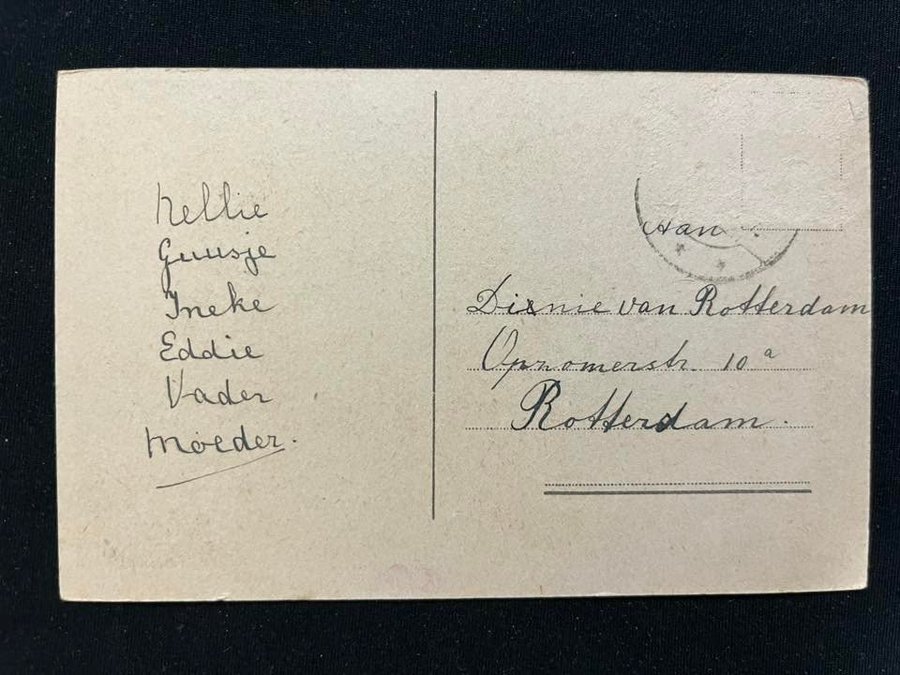 Nellie
Guusje
Ineke
Eddie
Vader
Moeder.
Aan
Dixnie van Rotterdam
Opzomerstr. 10a
Rotterdam.